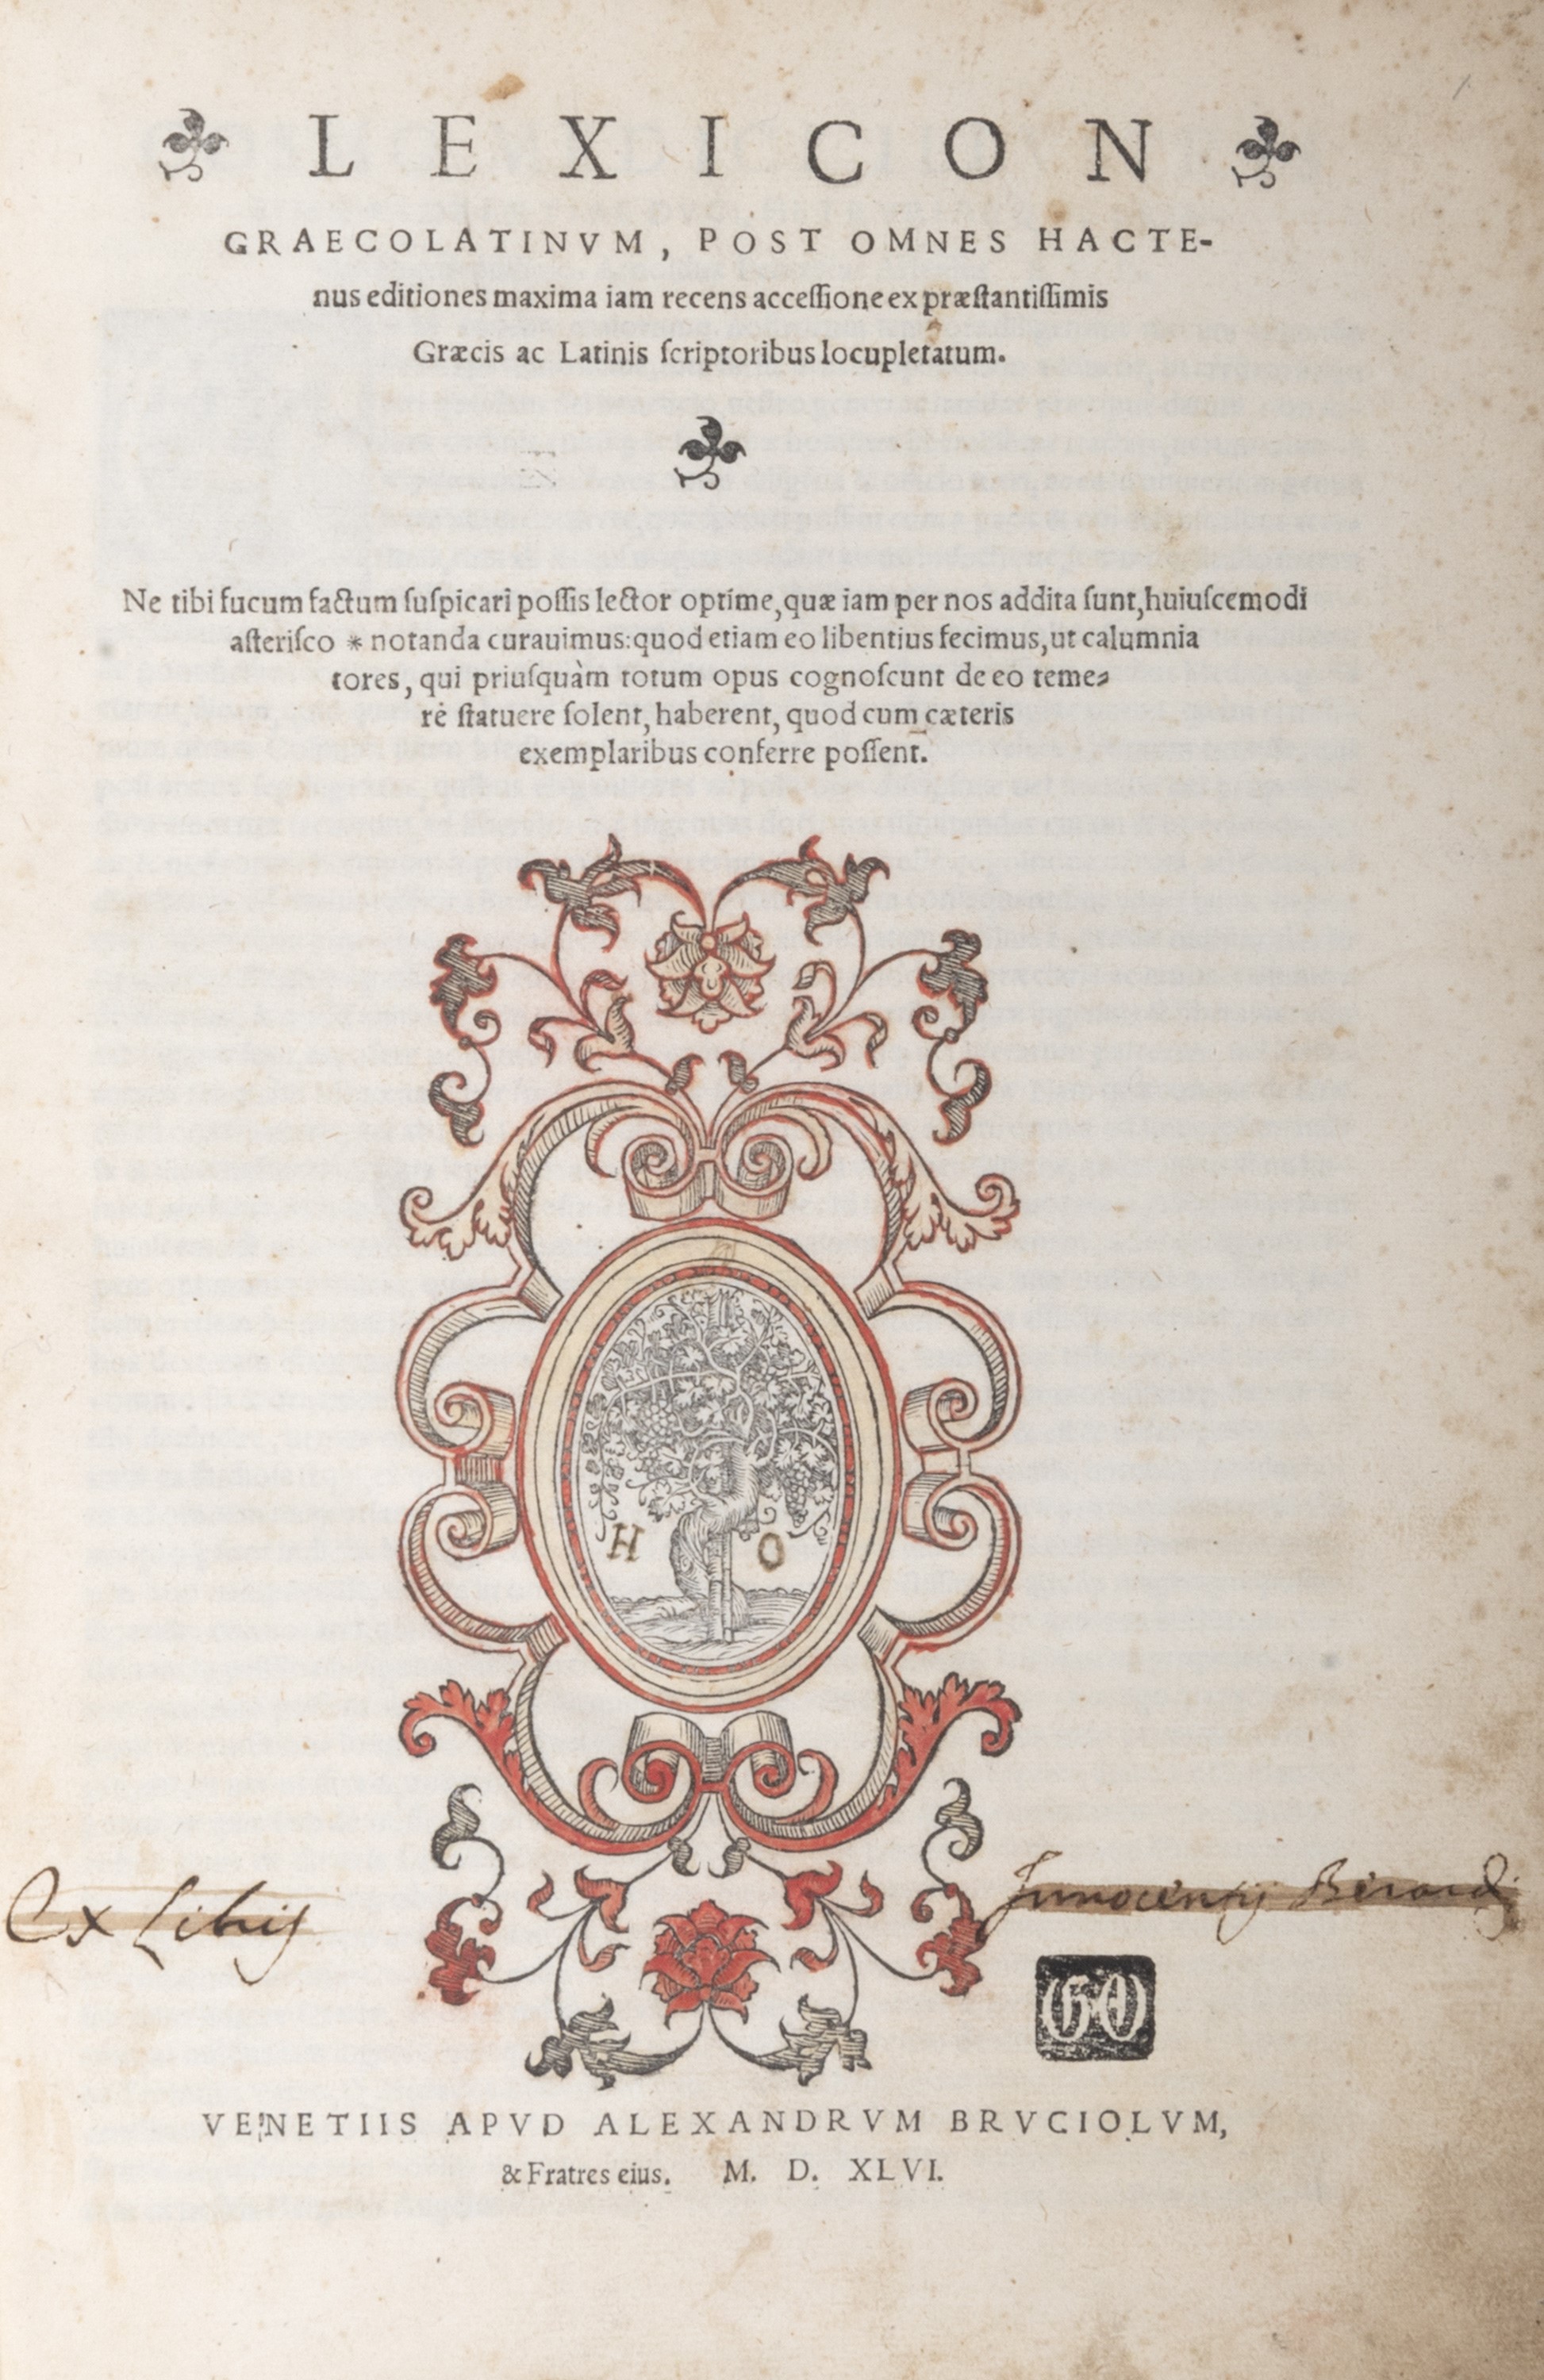 LEXICON
GRAECOLATINVM, POST OMNES HACTE-
nus editiones maxima iam recens accessione ex præstantissimis
Græcis ac Latinis ſcriptoribus locupletatum.
Ne tibi fucum factum ſuſpicari poſſis lector optime, quæ iam per nos addita ſunt, huiuſcemodi
aſteriſco * notanda curauimus: quod etiam eo libentius fecimus, ut calumnia
tores, qui priuſquàm totum opus cognoſcunt de eo teme-
rè ſtatuere ſolent, haberent, quod cum cæteris
exemplaribus conferre poſſent.
H O
Ex Libris Innocentij Berardi
GO
VENETIIS APVD ALEXANDRVM BRVCIOLVM,
& Fratres eius. M. D. XLVI.